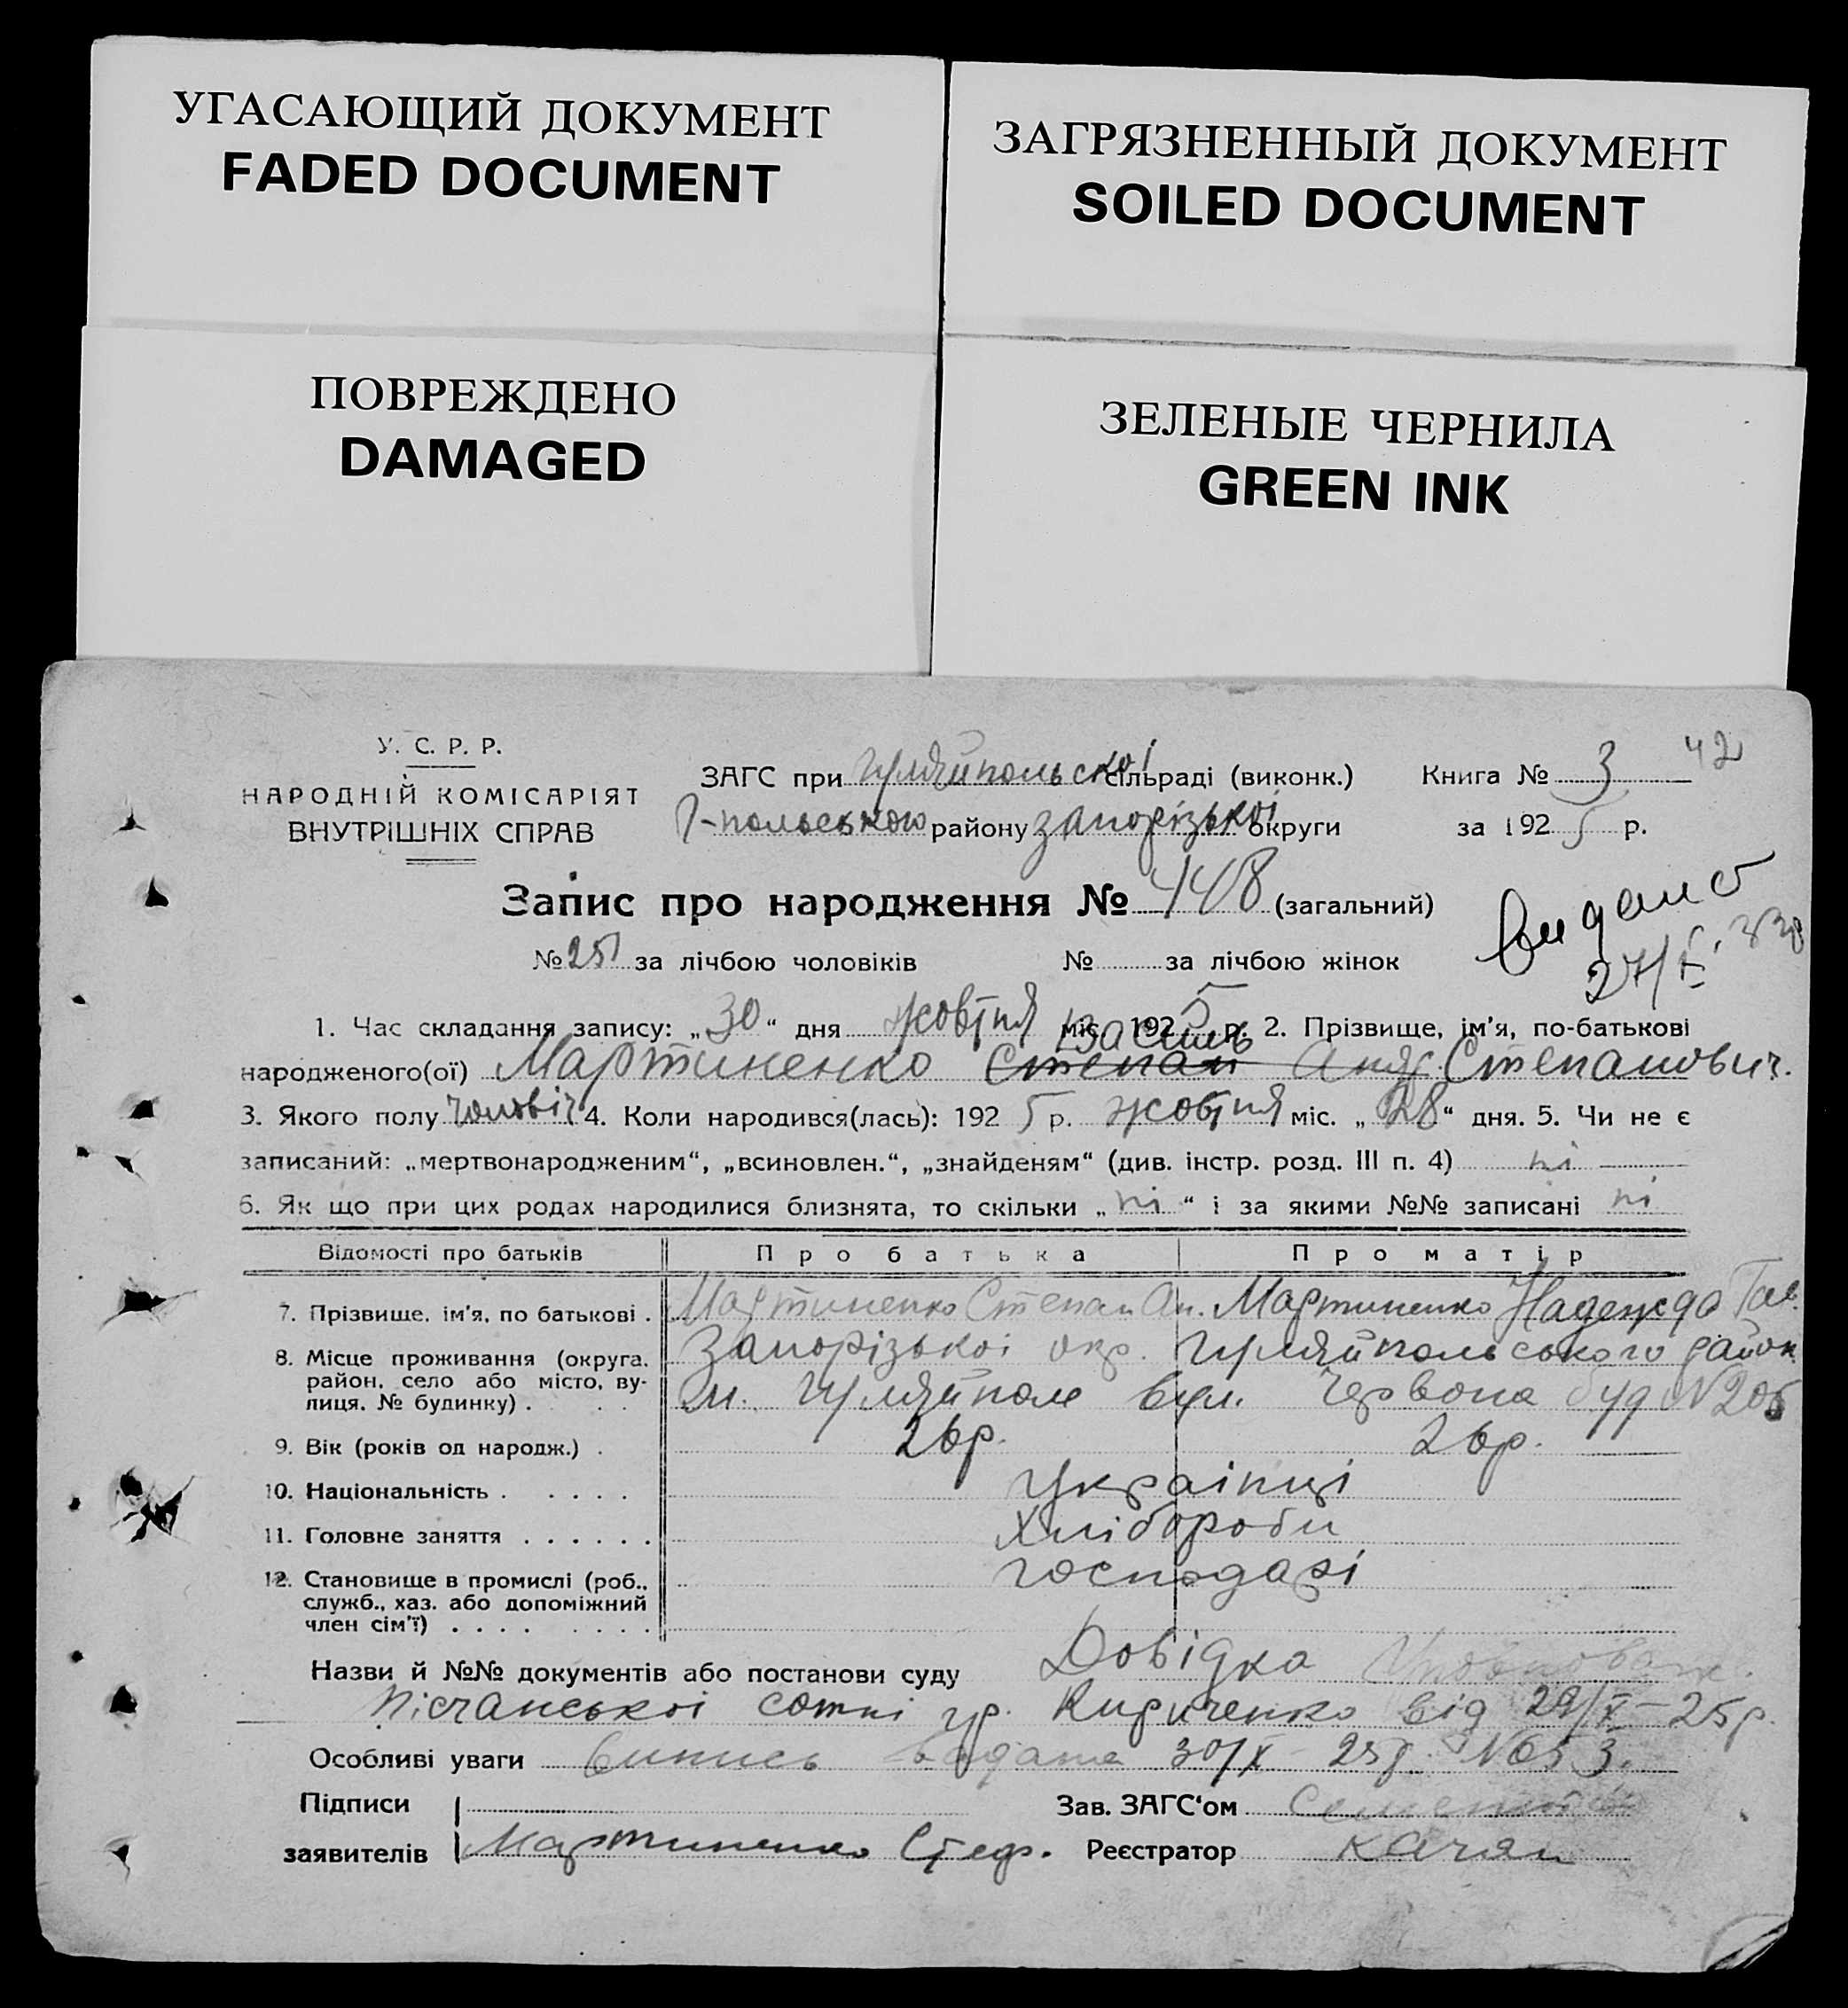 УГАСАЮЩИЙ ДОКУМЕНТ
FADED DOCUMENT
ЗАГРЯЗНЕННЫЙ ДОКУМЕНТ
SOILED DOCUMENT
ПОВРЕЖДЕНО
DAMAGED
ЗЕЛЕНЫЕ ЧЕРНИЛА
GREEN INK
У. С. Р. Р.
НАРОДНІЙ КОМІСАРІЯТ
ВНУТРІШНІХ СПРАВ
ЗАГС при Гуляйпольскоі сільраді (виконк.) Книга № 3 42
Г-польського району Запорізькоі округи за 1925 р.
Запис про народження № 448 (загальний)
видано
№ 251 за лічбою чоловіків № за лічбою жінок
27/
1. Час складання запису: „30“ дня жовтня міс. 1925 р. 2. Прізвище, ім'я, по-батькові
Василь
народженого(ої) Мартиненко Степан Степанович.
3. Якого полу чоловіч 4. Коли народився(лась): 1925 р. жовтня міс. „28“ дня. 5. Чи не є
записаний: „мертвонародженим“, „всиновлен.“, „знайденям“ (див. інстр. розд. III п. 4) ні
6. Як що при цих родах народилися близнята, то скільки „ні“ і за якими №№ записані ні
Відомості про батьків Про батька Про матір
7. Прізвище, ім'я, по батькові . Мартиненко Степан Ан. Мартиненко Надежда Гав.
8. Місце проживання (округа, район, село або місто, вулиця, № будинку) . . . Запорізькоі окр. Гуляйпольського район
м. Гуляйполе вул. Червона буд №206
9. Вік (років од народж.) . 26р. 26р.
10. Національність . . . . . Українці
11. Головне заняття . . . . . . Хлібороби
12. Становище в промислі (роб., служб., хаз. або допоміжний член сім'ї) . . . . . . . . господарі
Назви й №№ документів або постанови суду Довідка
Пісчанськоі сотні гр. Кириченко від 29/X-25р.
Особливі уваги Випись видана 30/X 25р. №653.
Підписи Зав. ЗАГС'ом
заявителів Мартиненко Степ. Реєстратор Качан